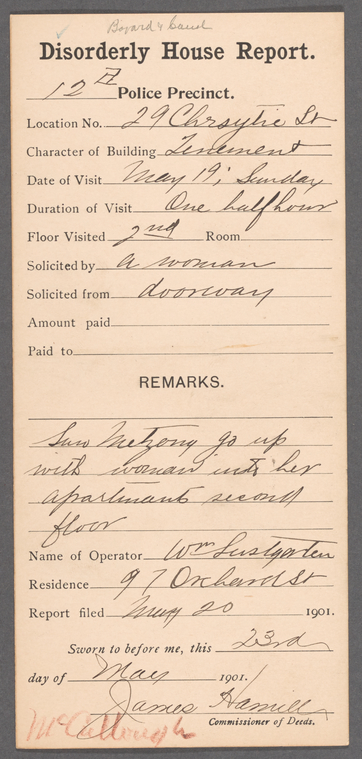 Disorderly House Report.
12th Police Precinct.
Location No. 29 Chrsytie St
Character of Building Tenement
Date of Visit May 19; Sunday
Duration of Visit One half hour
Floor Visited 2nd Room
Solicited by a woman
Solicited from doorway
Amount paid
Paid to
REMARKS.
Saw Metzony go up
with woman into her
apartments second
floor
Name of Operator Wm Lustgarten
Residence 97 Orchard St
Report filed May 20 1901.
Sworn to before me, this 23rd
day of May 1901.
James Hamill
Commissioner of Deeds.
McCullough